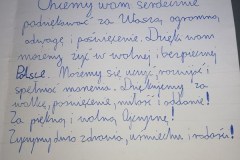 Chcemy wam serdecznie
podziękować za Waszą ogromną
odwagę i poświęcenie. Dzięki wam
możemy żyć w wolnej i bezpiecznej
Polsce. Możemy się uczyć, rozwijać i
spełniać marzenia. Dziękujemy za
walkę, poświęcenie, miłość i oddanie!
Za piękną i wolną Ojczyznę!
Życzymy dużo zdrowia, uśmiechu i radości!